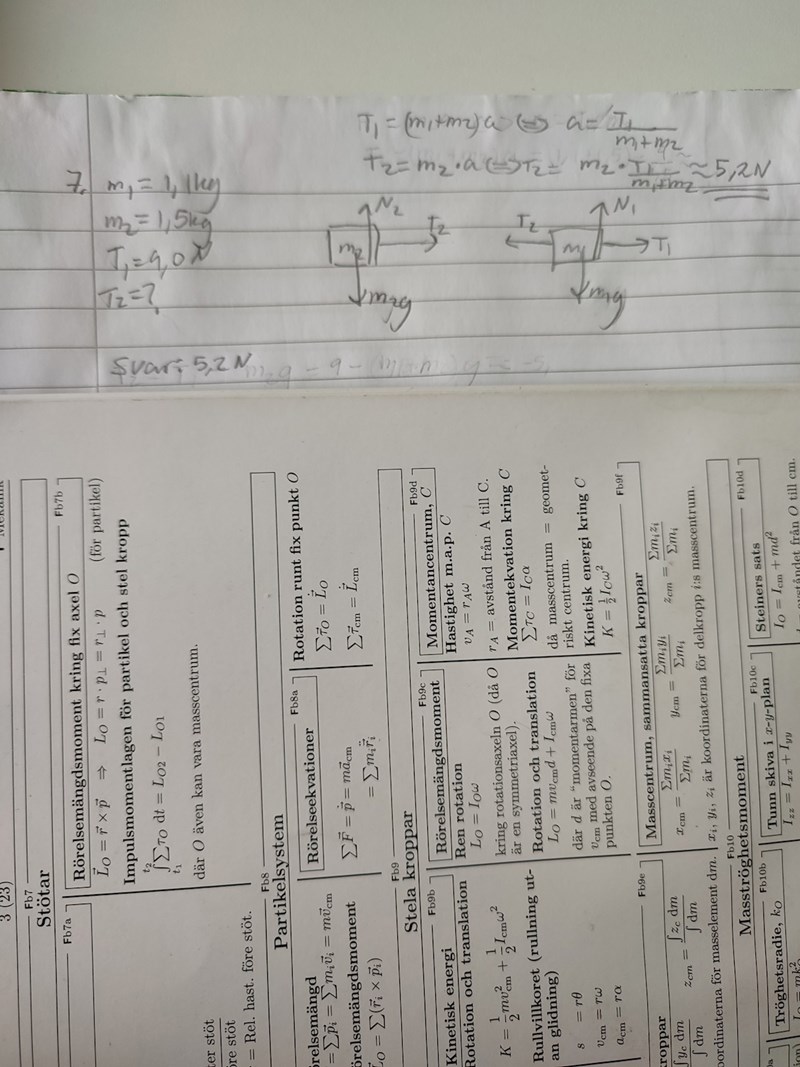 T₁ = (m₁+m₂)a ⇔ a = T₁/(m₁+m₂)
T₂ = m₂·a ⇔ T₂ = m₂·T₁/(m₁+m₂) ≈ 5,2N
7. m₁ = 1,1kg
m₂ = 1,5kg
T₁ = 9,0N
T₂ = ?
N₂
T₂
m₂
m₂g
N₁
T₂
m₁
T₁
m₁g
Svar: 5,2N
3 (23)
Fb7
Stötar
Fb7a
Fb7b
Rörelsemängdsmoment kring fix axel O
L⃗_O = r⃗ × p⃗ ⇒ L_O = r · p_⊥ = r_⊥ · p (för partikel)
Impulsmomentlagen för partikel och stel kropp
∫_{t₁}^{t₂} ∑τ_O dt = L_{O2} − L_{O1}
där O även kan vara masscentrum.
ter stöt
öre stöt
= Rel. hast. före stöt.
Fb8
Partikelsystem
relsemängd
= ∑p⃗ᵢ = ∑mᵢv⃗ᵢ = mv⃗_cm
örelsemängdsmoment
L⃗_O = ∑(r⃗ᵢ × p⃗ᵢ)
Fb8a
Rörelseekvationer
∑F⃗ = ṗ⃗ = ma⃗_cm
= ∑mᵢr̈⃗ᵢ
Rotation runt fix punkt O
∑τ⃗_O = L̇⃗_O
∑τ⃗_cm = L̇⃗_cm
Fb9
Stela kroppar
Fb9b
Kinetisk energi
Rotation och translation
K = ½mv²_cm + ½I_cmω²
Rullvillkoret (rullning utan glidning)
s = rθ
v_cm = rω
a_cm = rα
Fb9c
Rörelsemängdsmoment
Ren rotation
L_O = I_Oω
kring rotationsaxeln O (då O
är en symmetriaxel).
Rotation och translation
L_O = mv_cmd + I_cmω
där d är "momentarmen" för
v_cm med avseende på den fixa
punkten O.
Fb9d
Momentancentrum, C
Hastighet m.a.p. C
v_A = r_Aω
r_A = avstånd från A till C.
Momentekvation kring C
∑τ_C = I_Cα
då masscentrum = geomet-
riskt centrum.
Kinetisk energi kring C
K = ½I_Cω²
Fb9e
kroppar
∫y_c dm/∫dm z_cm = ∫z_c dm/∫dm
oordinaterna för masselement dm.
Fb9f
Masscentrum, sammansatta kroppar
x_cm = ∑mᵢxᵢ/∑mᵢ y_cm = ∑mᵢyᵢ/∑mᵢ z_cm = ∑mᵢzᵢ/∑mᵢ
xᵢ, yᵢ, zᵢ är koordinaterna för delkropp i:s masscentrum.
Fb10
Masströghetsmoment
Fb10b
Tröghetsradie, k_O
Fb10c
Tunn skiva i x-y-plan
I_zz = I_xx + I_yy
Fb10d
Steiners sats
I_O = I_cm + md²
från O till cm.